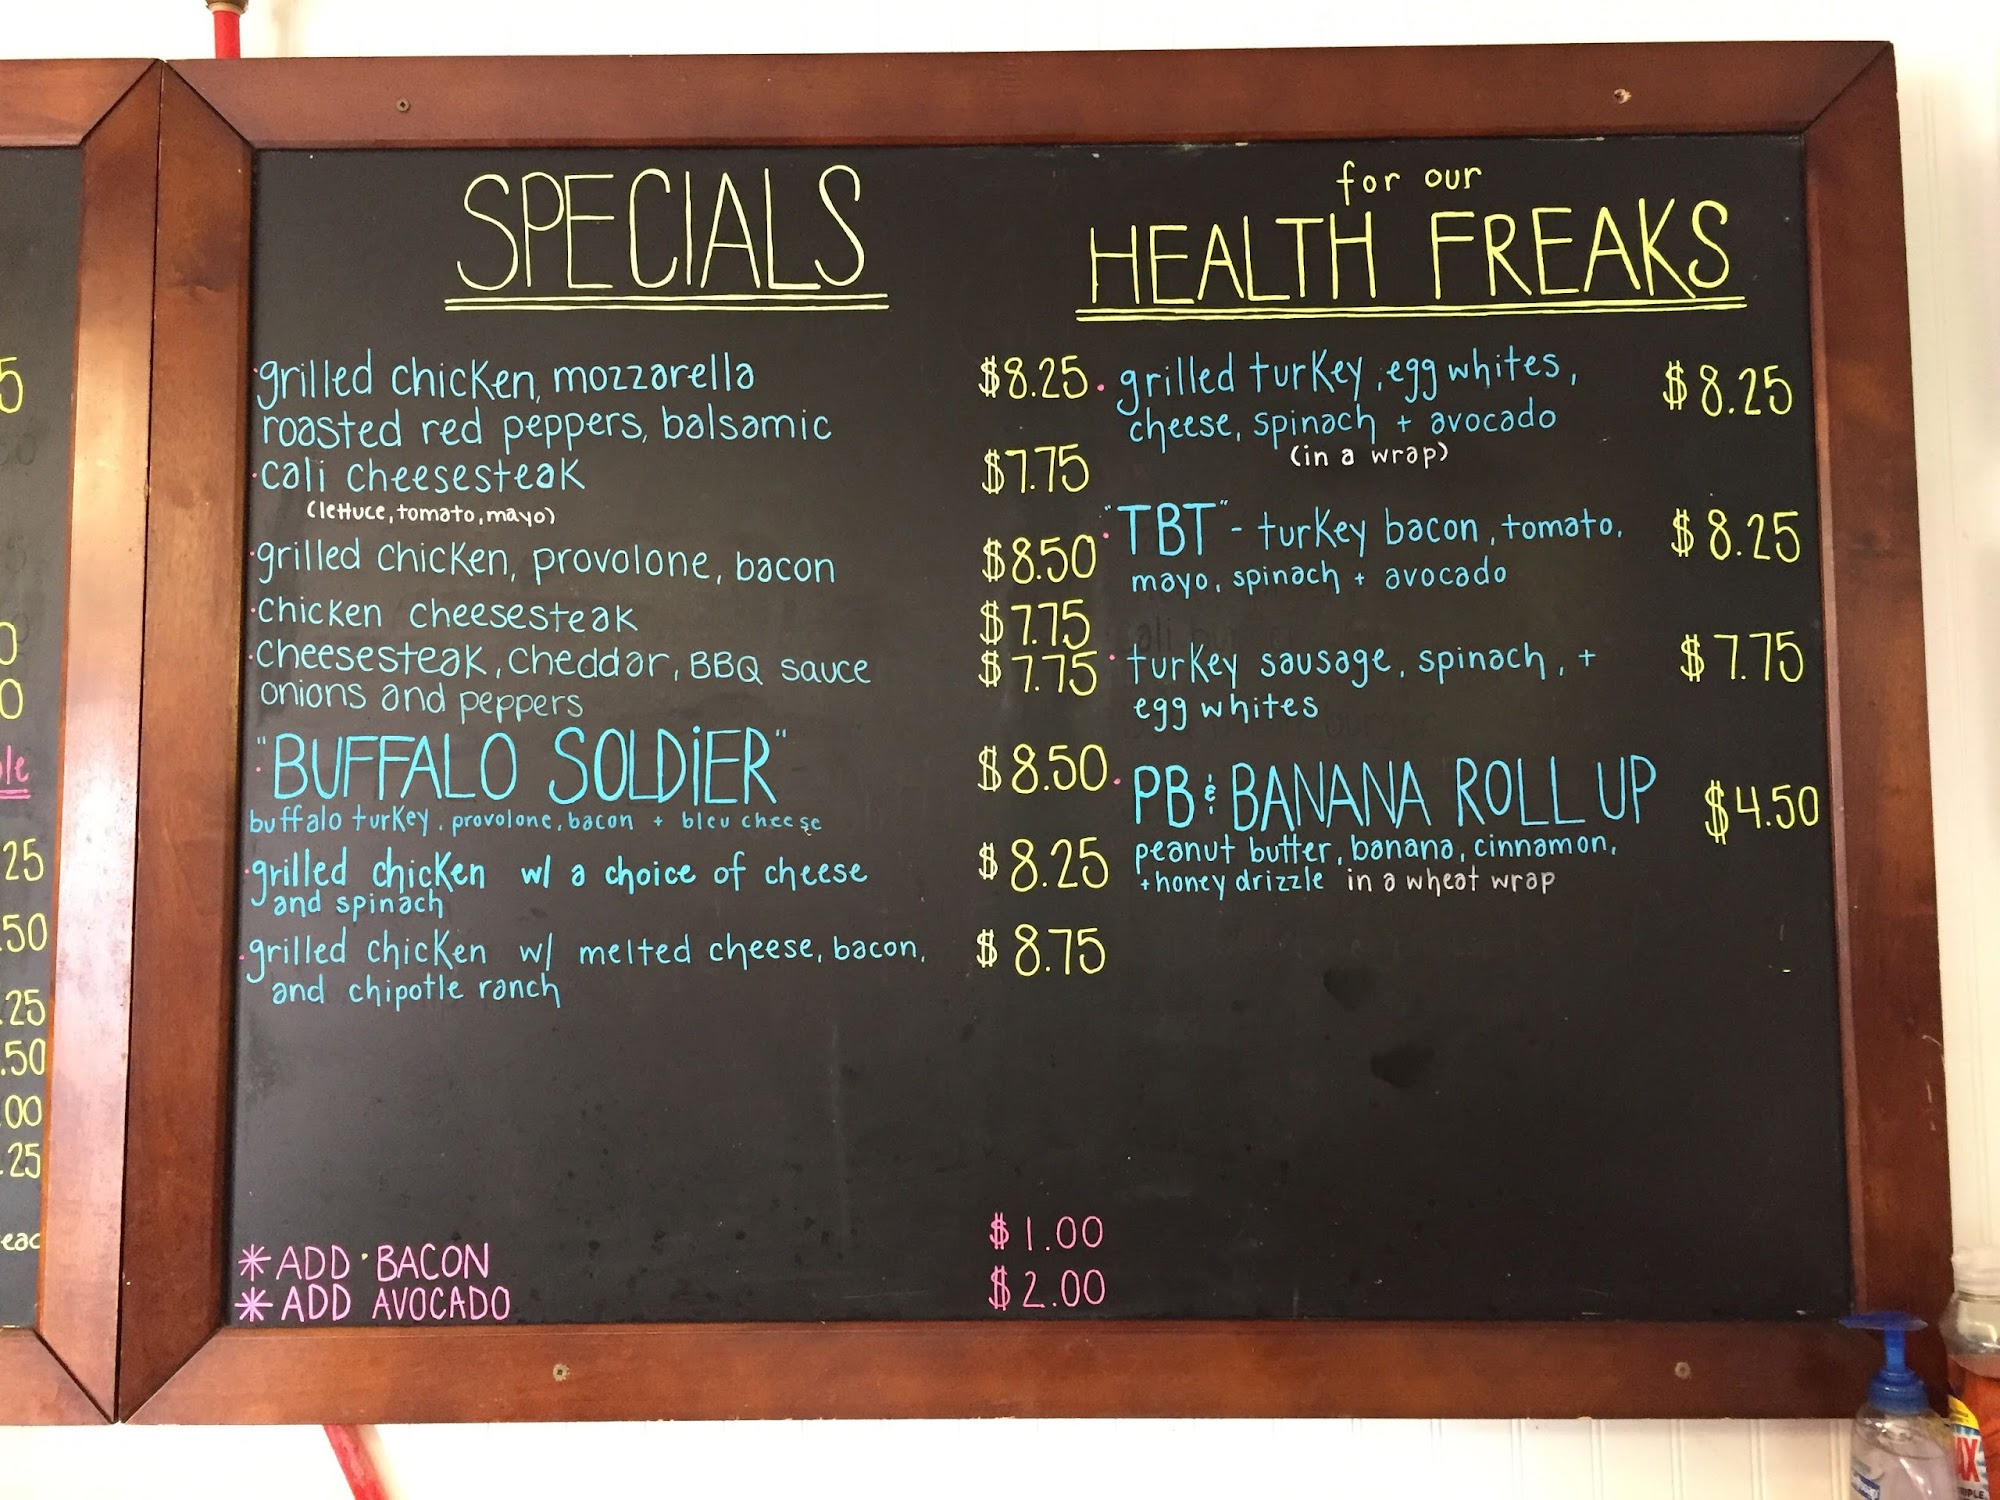 SPECIALS
grilled chicken, mozzarella $8.25
roasted red peppers, balsamic
cali cheesesteak $7.75
(lettuce, tomato, mayo)
grilled chicken, provolone, bacon $8.50
chicken cheesesteak $7.75
cheesesteak, cheddar, BBQ sauce $7.75
onions and peppers
"BUFFALO SOLDiER" $8.50
buffalo turkey, provolone, bacon + bleu cheese
grilled chicken w/ a choice of cheese $8.25
and spinach
grilled chicken w/ melted cheese, bacon, $8.75
and chipotle ranch
*ADD BACON $1.00
*ADD AVOCADO $2.00
for our
HEALTH FREAKS
grilled turkey, egg whites, $8.25
cheese, spinach + avocado
(in a wrap)
"TBT" - turkey bacon, tomato, $8.25
mayo, spinach + avocado
turkey sausage, spinach, + $7.75
egg whites
PB & BANANA ROLL UP $4.50
peanut butter, banana, cinnamon,
+honey drizzle in a wheat wrap
5
0
0
25
50
.25
.50
.00
.25